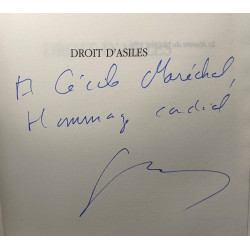 DROIT D'ASILES
A Cécile Maréchal,
Hommage cordial,